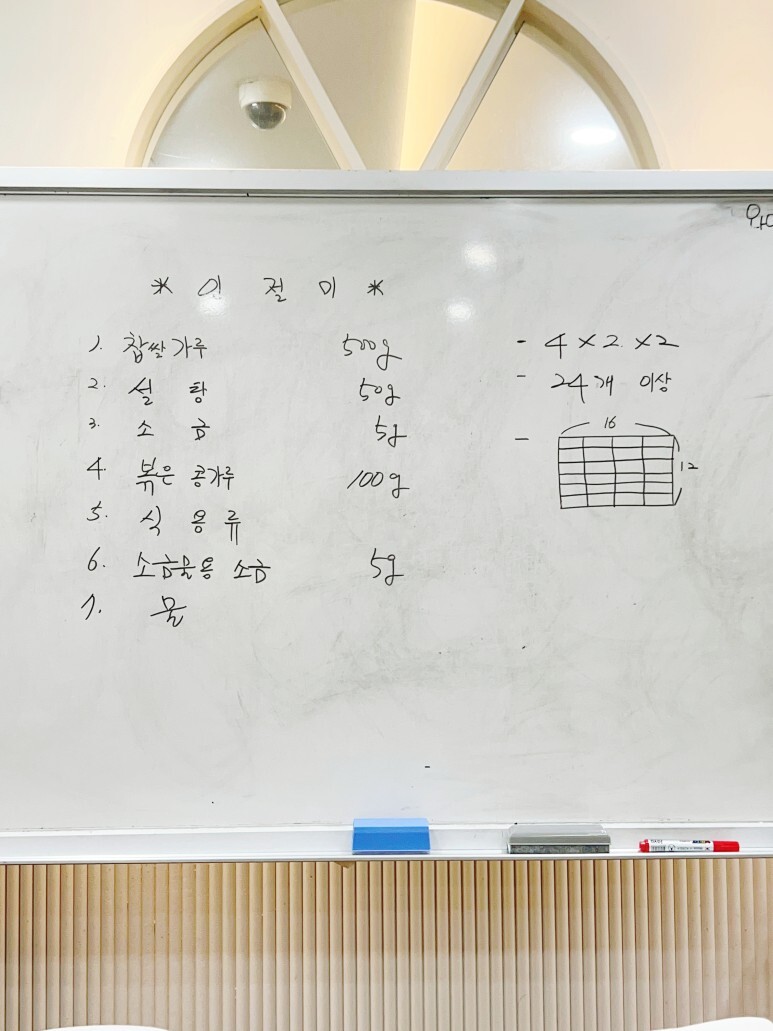 * 인 절 미 *
1. 찹쌀가루 500g
2. 설 탕 50g
3. 소 금 5g
4. 볶은 콩가루 100g
5. 식 용 류
6. 소금물용 소금 5g
7. 물
- 4 × 2 × 2
- 24개 이상
- 16
12